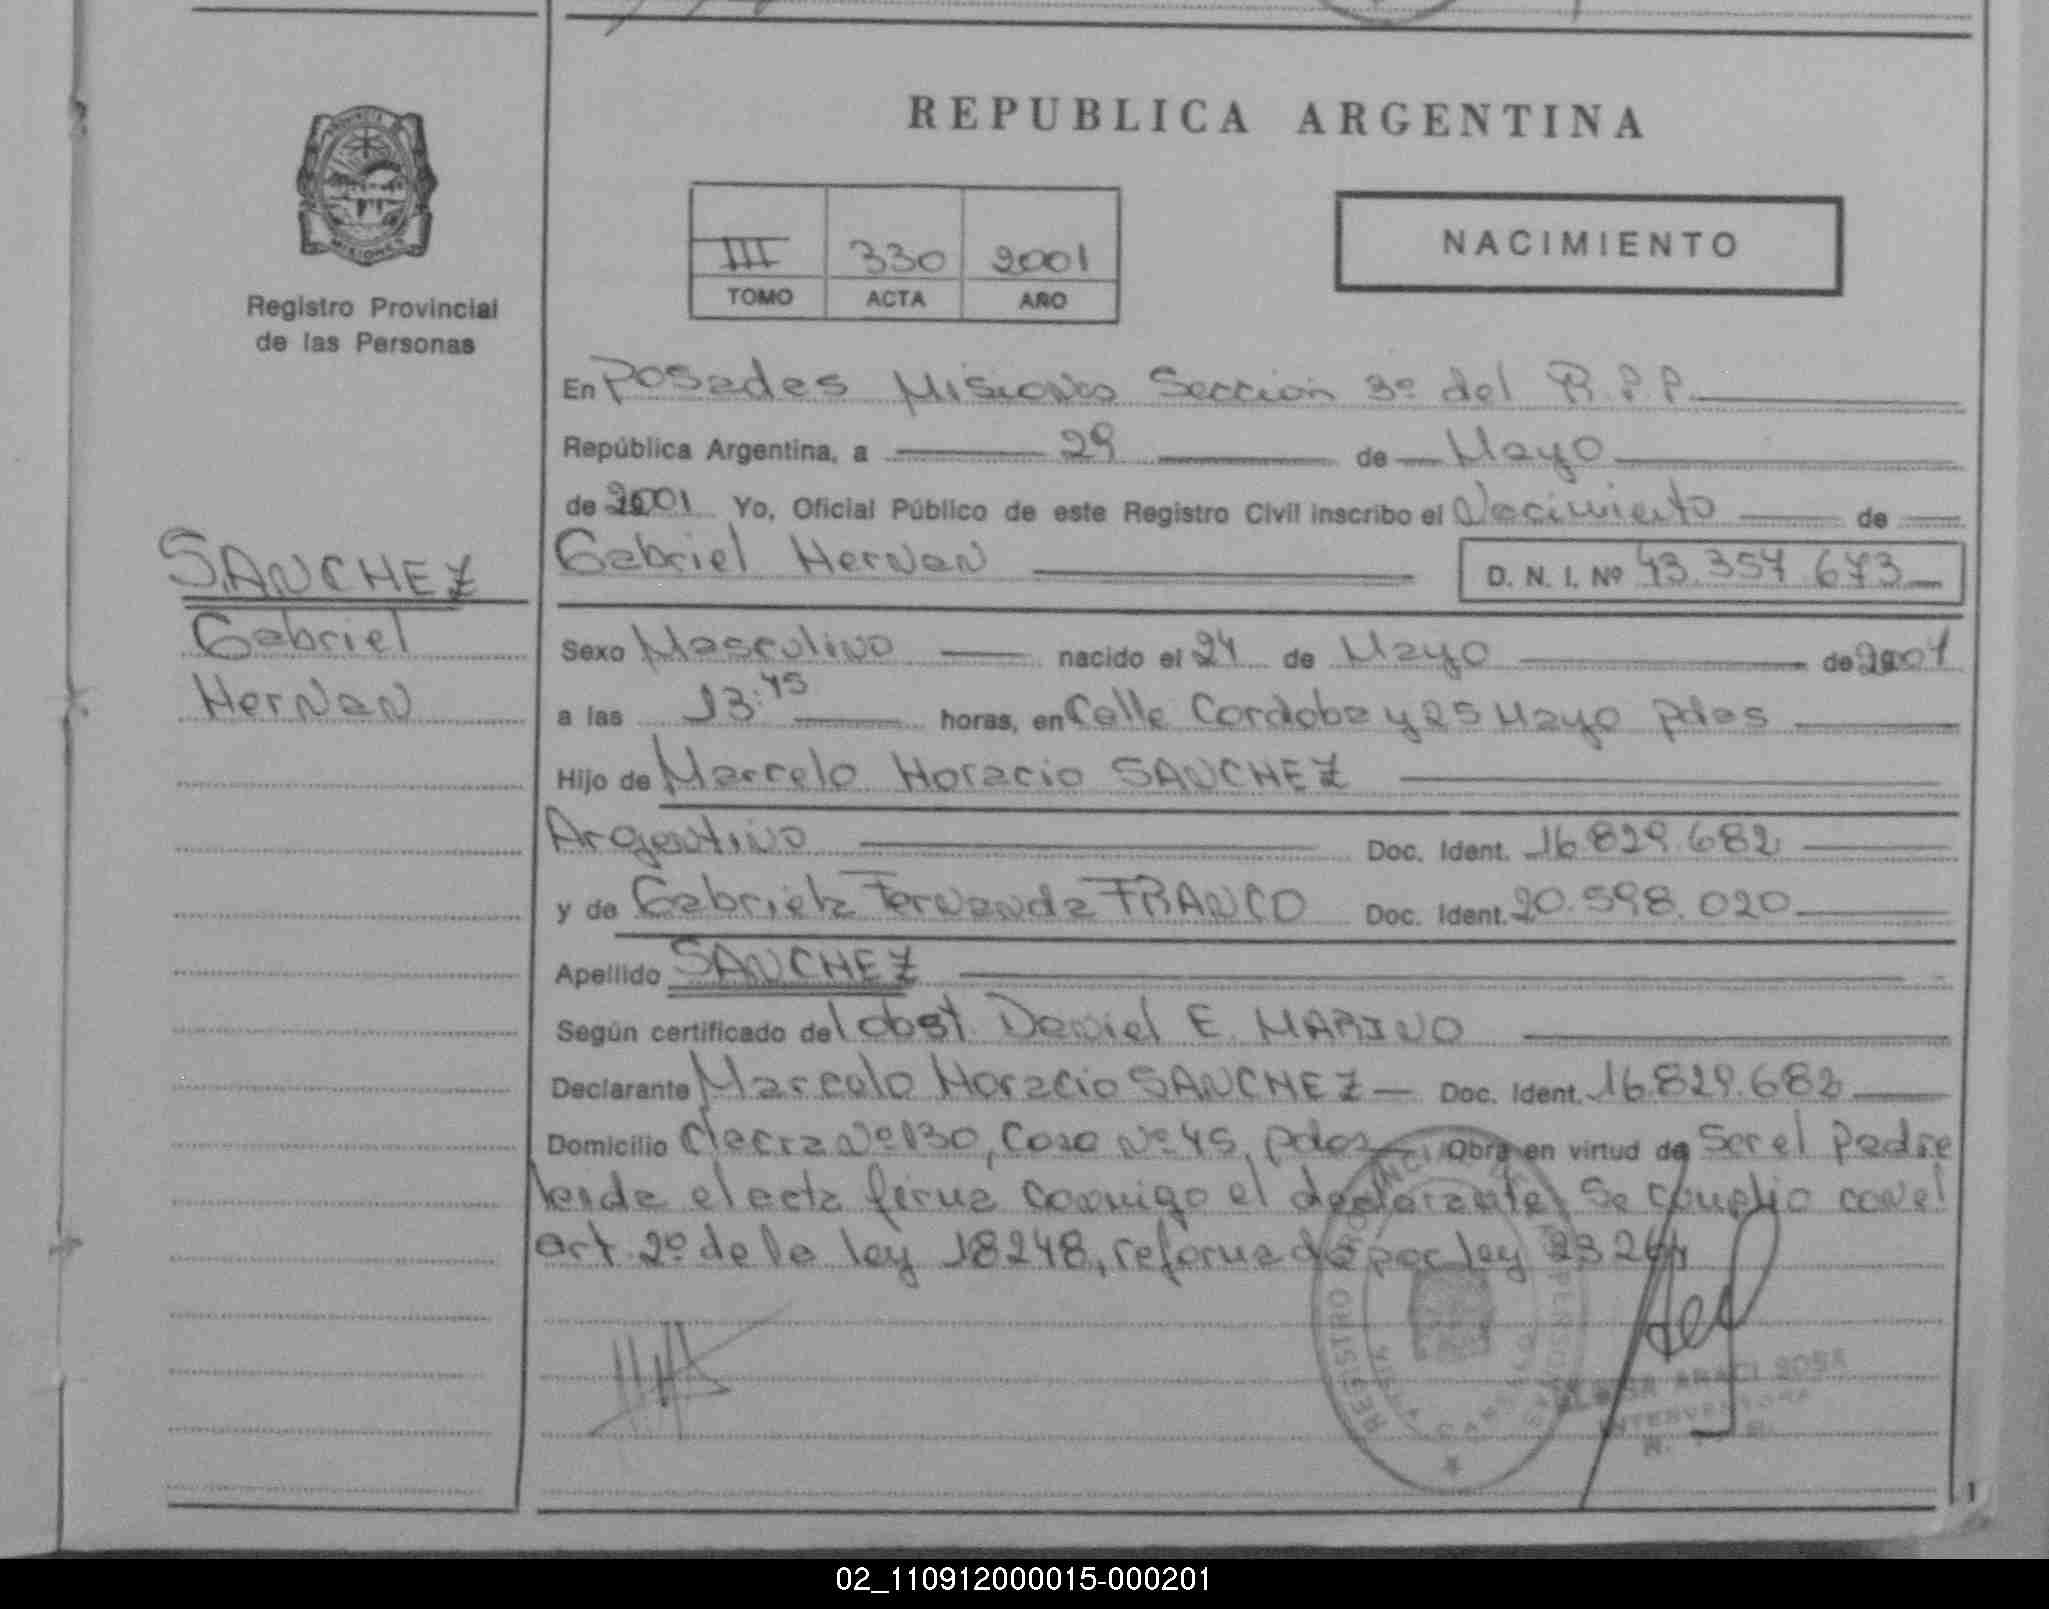 REPUBLICA ARGENTINA
PROVINCIA
MISIONES
Registro Provincial
de las Personas
III 330 2001
TOMO ACTA AÑO
NACIMIENTO
En Posadas Misiones Sección 3º del R.P.P.
República Argentina, a 29 de Mayo
de 2001 Yo, Oficial Público de este Registro Civil inscribo el Nacimiento de
Gabriel Hernan D. N. I. Nº 43.357.673
SANCHEZ
Gabriel
Hernan
Sexo Masculino nacido el 24 de Mayo de 2001
a las 13:45 horas, en Calle Cordoba y 25 Mayo pdas
Hijo de Marcelo Horacio SANCHEZ
Argentino Doc. Ident. 16.829.682
y de Gabriela Fernanda FRANCO Doc. Ident. 20.598.020
Apellido SANCHEZ
Según certificado del obst. Daniel E. MARINO
Declarante Marcelo Horacio SANCHEZ Doc. Ident. 16.829.682
Domicilio chacra Nº 130, Casa Nº 45, pdas Obra en virtud de Ser el Padre
leida el acta firma conmigo el declarante, Se cumplio con el
art. 2º de la ley 18248, reformada por ley 23264
REGISTRO PROVINCIAL DE LAS PERSONAS
ARACI SOSA
INTERVENTORA
1
02_110912000015-000201